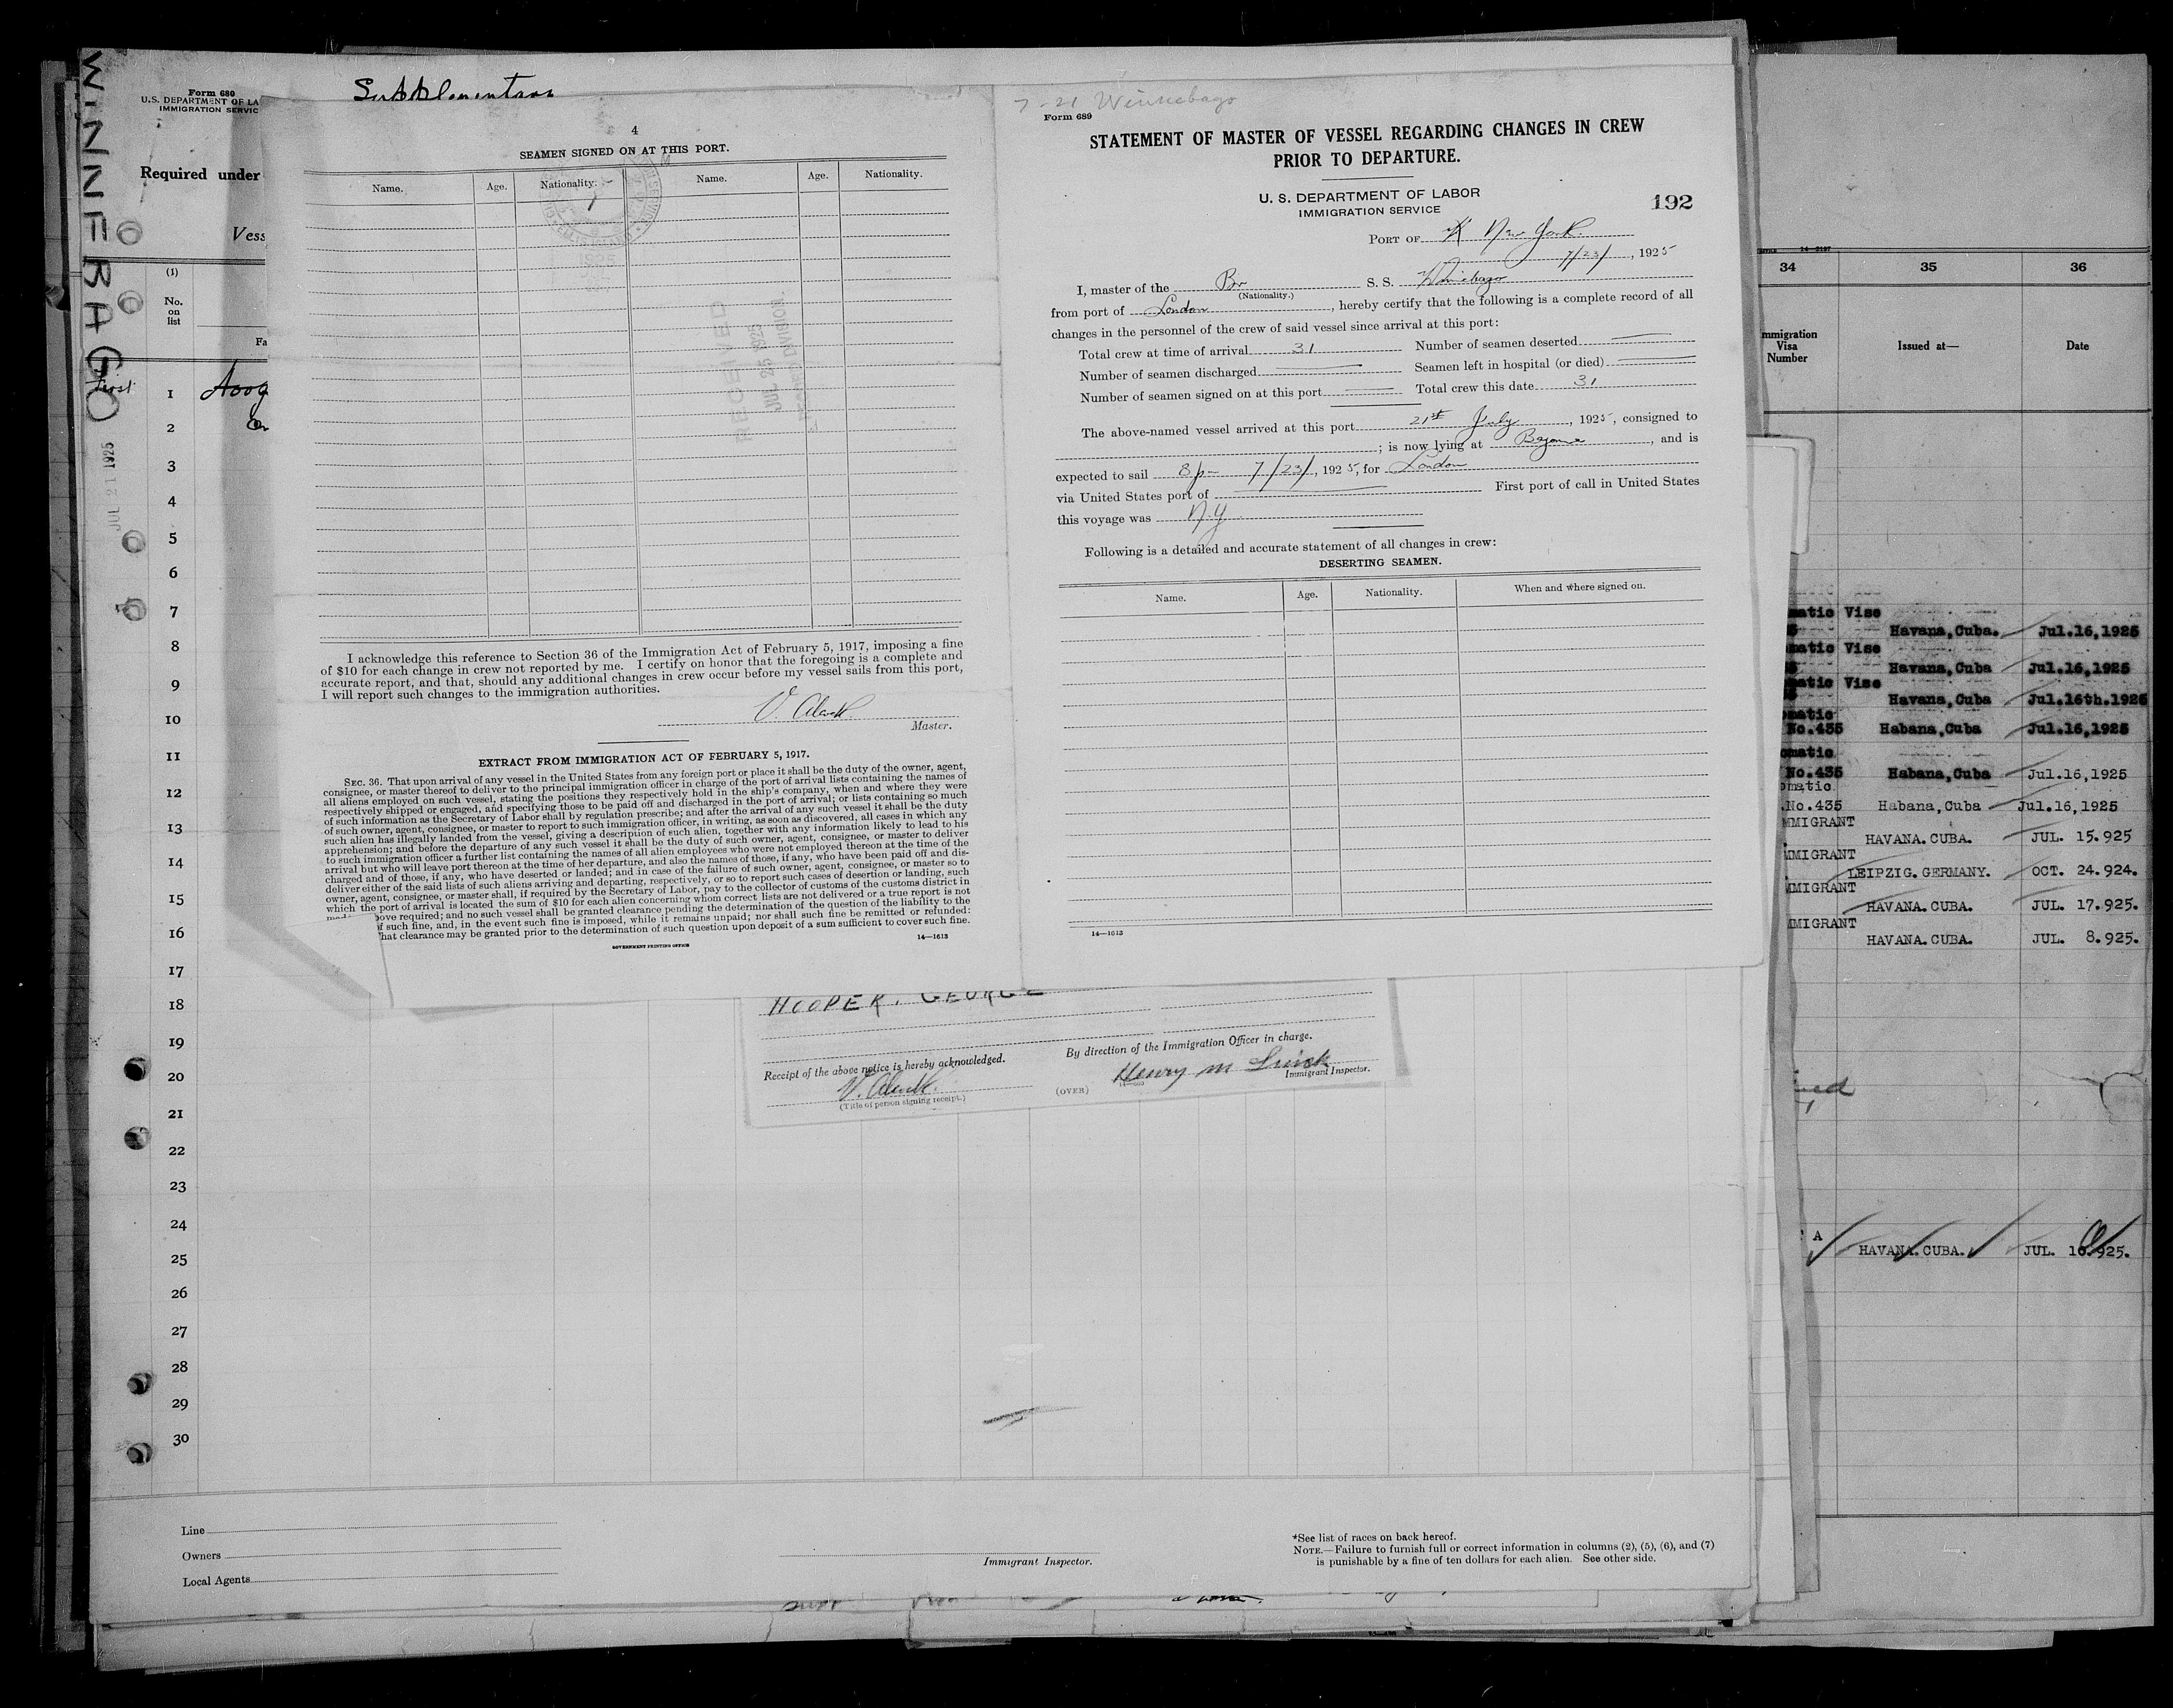 WINNEBAGO
JUL 21 1925
Form 680
U.S. DEPARTMENT OF LA
IMMIGRATION SERVIC
Required under
Vess
(1)
No.
on
list
Fa
First
1
2
3
4
5
6
7
8
9
10
11
12
13
14
15
16
17
18
19
20
21
22
23
24
25
26
27
28
29
30
4
SEAMEN SIGNED ON AT THIS PORT.
Name. Age. Nationality. Name. Age. Nationality.
RECEIVED
JUL 25 1925
DIVISION.
I acknowledge this reference to Section 36 of the Immigration Act of February 5, 1917, imposing a fine
of $10 for each change in crew not reported by me. I certify on honor that the foregoing is a complete and
accurate report, and that, should any additional changes in crew occur before my vessel sails from this port,
I will report such changes to the immigration authorities.
Master.
EXTRACT FROM IMMIGRATION ACT OF FEBRUARY 5, 1917.
SEC. 36. That upon arrival of any vessel in the United States from any foreign port or place it shall be the duty of the owner, agent,
consignee, or master thereof to deliver to the principal immigration officer in charge of the port of arrival lists containing the names of
all aliens employed on such vessel, stating the positions they respectively hold in the ship's company, when and where they were
respectively shipped or engaged, and specifying those to be paid off and discharged in the port of arrival; or lists containing so much
of such information as the Secretary of Labor shall by regulation prescribe; and after the arrival of any such vessel it shall be the duty
of such owner, agent, consignee, or master to report to such immigration officer, in writing, as soon as discovered, all cases in which any
such alien has illegally landed from the vessel, giving a description of such alien, together with any information likely to lead to his
apprehension; and before the departure of any such vessel it shall be the duty of such owner, agent, consignee, or master to deliver
to such immigration officer a further list containing the names of all alien employees who were not employed thereon at the time of the
arrival but who will leave port thereon at the time of her departure, and also the names of those, if any, who have been paid off and dis-
charged and of those, if any, who have deserted or landed; and in case of the failure of such owner, agent, consignee, or master so to
deliver either of the said lists of such aliens arriving and departing, respectively, or so to report such cases of desertion or landing, such
owner, agent, consignee, or master shall, if required by the Secretary of Labor, pay to the collector of customs of the customs district in
which the port of arrival is located the sum of $10 for each alien concerning whom correct lists are not delivered or a true report is not
bove required; and no such vessel shall be granted clearance pending the determination of the question of the liability to the
f such fine, and, in the event such fine is imposed, while it remains unpaid; nor shall such fine be remitted or refunded:
hat clearance may be granted prior to the determination of such question upon deposit of a sum sufficient to cover such fine.
GOVERNMENT PRINTING OFFICE
14—1613
7-21 Winnebago
Form 689
STATEMENT OF MASTER OF VESSEL REGARDING CHANGES IN CREW
PRIOR TO DEPARTURE.
U. S. DEPARTMENT OF LABOR
IMMIGRATION SERVICE
192
PORT OF New York
7/23/, 1925
I, master of the Br S. S. Winebago
(Nationality.)
from port of London, hereby certify that the following is a complete record of all
changes in the personnel of the crew of said vessel since arrival at this port:
Total crew at time of arrival 31 Number of seamen deserted
Number of seamen discharged Seamen left in hospital (or died)
Number of seamen signed on at this port Total crew this date 31
The above-named vessel arrived at this port 21st July, 1925, consigned to
; is now lying at Bayonne, and is
expected to sail 8p- 7/23/, 1925, for London
via United States port of First port of call in United States
this voyage was N.Y
Following is a detailed and accurate statement of all changes in crew:
DESERTING SEAMEN.
Name. Age. Nationality. When and where signed on.
14—1613
HOOPER, GEORGE
Receipt of the above notice is hereby acknowledged.
(Title of person signing receipt.)
(OVER)
By direction of the Immigration Officer in charge.
Henry M
Immigrant Inspector.
Line
Owners
Local Agents
Immigrant Inspector.
*See list of races on back hereof.
NOTE.—Failure to furnish full or correct information in columns (2), (5), (6), and (7)
is punishable by a fine of ten dollars for each alien. See other side.
34 35 36
mmigration
Visa
Number
Issued at—
Date
matic Vise
Havana,Cuba. Jul.16,1925
matic Vise
Havana,Cuba Jul.16,1925
matic Vise
Havana,Cuba Jul.16th.1925
omatic
No.435 Habana,Cuba Jul.16,1925
omatic
No.435 Habana,Cuba Jul.16,1925
omatic
.No.435 Habana,Cuba Jul.16,1925
MMIGRANT
HAVANA.CUBA. JUL. 15.925
MMIGRANT
LEIPZIG.GERMANY. OCT. 24.924.
MMIGRANT
HAVANA.CUBA. JUL. 17.925.
MMIGRANT
HAVANA.CUBA. JUL. 8.925.
A HAVANA.CUBA. JUL. 10.925.